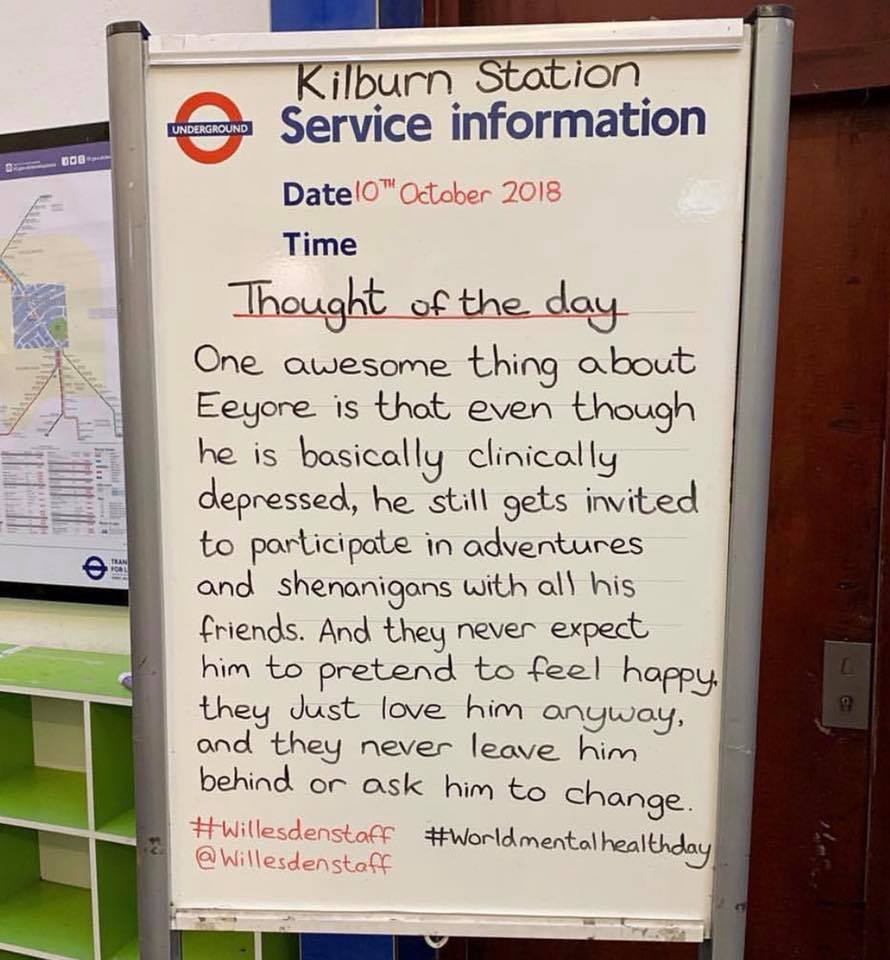 Kilburn Station
UNDERGROUND
Service information
Date 10TH October 2018
Time
Thought of the day
One awesome thing about
Eeyore is that even though
he is basically clinically
depressed, he still gets invited
to participate in adventures
and shenanigans with all his
friends. And they never expect
him to pretend to feel happy,
they Just love him anyway,
and they never leave him
behind or ask him to change.
#Willesdenstaff #Worldmentalhealthday
@Willesdenstaff